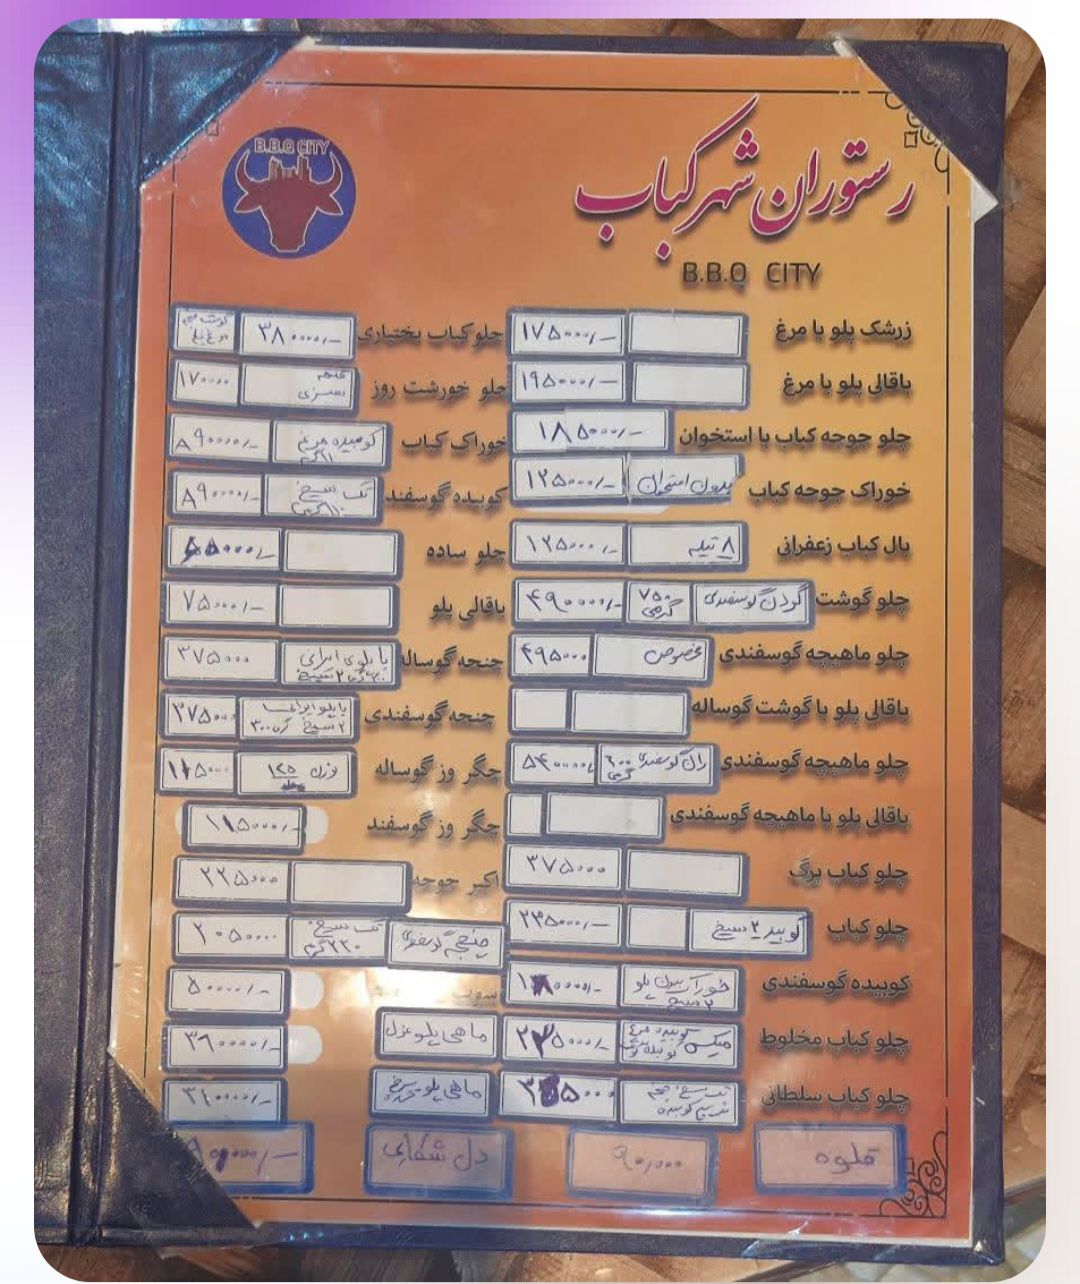 B.B.Q CITY
رستوران شهر کباب
B.B.Q CITY
زرشک پلو با مرغ ۱۷۵۰۰۰/-
باقالی پلو با مرغ ۱۹۵۰۰۰/-
چلو جوجه کباب با استخوان ۱۸۵۰۰۰/-
خوراک جوجه کباب بدون استخوان ۱۲۵۰۰۰/-
بال کباب زعفرانی ۸ تیکه ۱۲۵۰۰۰/-
چلو گوشت گردن گوسفندی ۷۵۰ گرمی ۴۹۰۰۰۰/-
چلو ماهیچه گوسفندی مخصوص ۴۹۵۰۰۰
باقالی پلو با گوشت گوساله
چلو ماهیچه گوسفندی ران گوسفندی ۶۰۰ گرمی ۵۴۰۰۰۰/-
باقالی پلو با ماهیچه گوسفندی
چلو کباب برگ ۳۷۵۰۰۰
چلو کباب کوبیده ۲ سیخ ۲۳۵۰۰۰/-
کوبیده گوسفندی خوراک بدون پلو ۲ سیخ
چلو کباب مخلوط میکس کوبیده مرغ
چلو کباب سلطانی
قلوه ۹۰,۰۰۰
چلو کباب بختیاری ۳۸۰۰۰۰/-
چلو خورشت روز سبزی ۱۷۰۰۰۰
خوراک کباب کوبیده مرغ ۸۹۰۰۰/-
کوبیده گوسفند تک سیخ ۸۹۰۰۰/-
چلو ساده
باقالی پلو ۷۵۰۰۰/-
چنجه گوساله با پلوی ایرانی ۳۷۵۰۰۰
چنجه گوسفندی با پلو ایرانی ۲ سیخ ۳۷۵۰۰۰
جگر وز گوساله وزن ۱۲۵
جگر وز گوسفند ۱۱۵۰۰۰/-
اکبر جوجه ۲۲۵۰۰۰
چنجه گوسفندی تک سیخ ۲۲۰ گرم ۲۰۵۰۰۰
سوپ ۵۰۰۰۰/-
ماهی پلو قزل ۳۶۰۰۰۰/-
ماهی پلو
دل